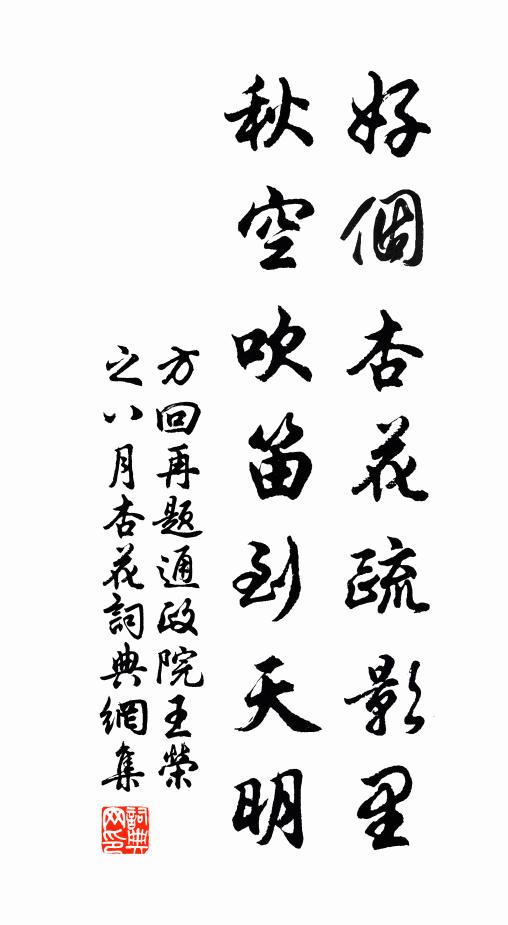 好個杏花疏影里
秋空吹笛到天明
方回再題通政院王榮
之八月杏花詞典網集
詞典
网印